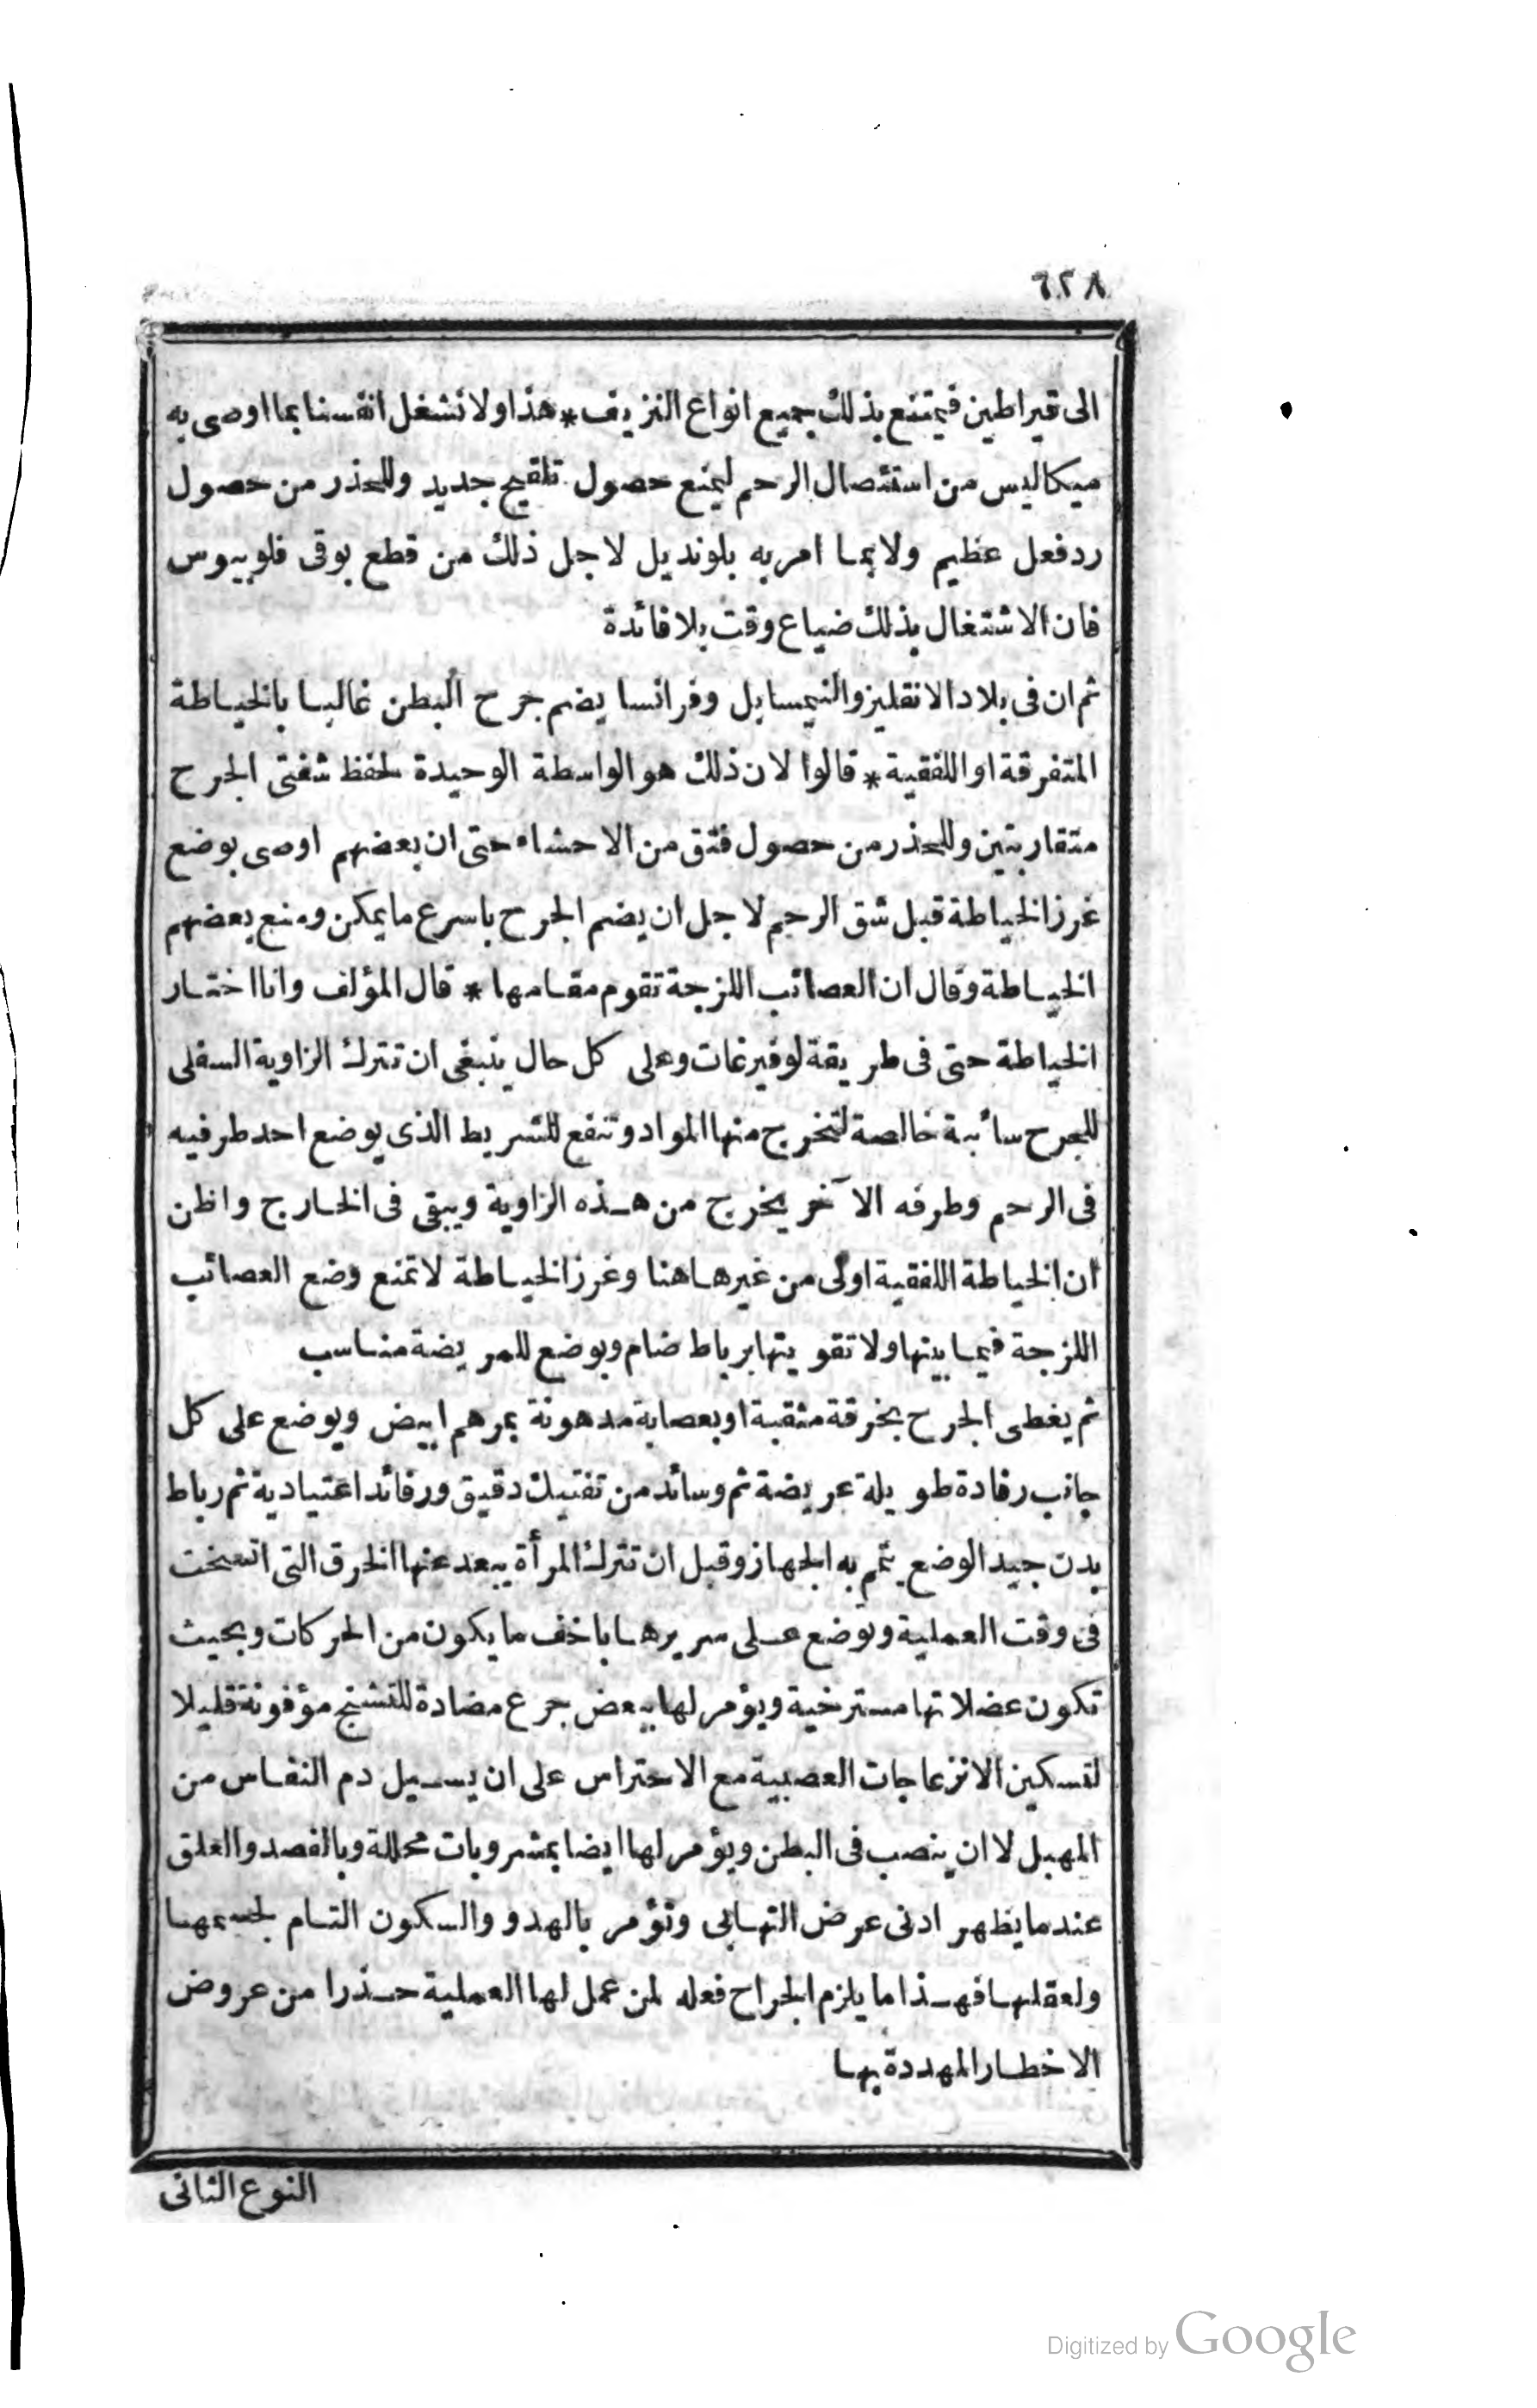 ٦٢٨
الى قيراطين فيمتنع بذلك جميع انواع النزيف * هذا ولا نشغل انفسنا بما اوصى به
ميكاليس من استئصال الرحم ليمنع حصول تلقيح جديد وللحذر من حصول
رد فعل عظيم ولا بما امر به بلونديل لاجل ذلك من قطع بوقى فلوبيوس
فان الاشتغال بذلك ضياع وقت بلا فائدة
ثم ان فى بلاد الانقليز والنيمسا بل وفرانسا يضم جرح البطن غالبا بالخياطة
المتفرقة او اللفقية * قالوا لان ذلك هو الواسطة الوحيدة لحفظ شفتى الجرح
متقاربتين وللحذر من حصول فتق من الاحشاء حتى ان بعضهم اوصى بوضع
غرز الخياطة قبل شق الرحم لاجل ان يضم الجرح باسرع ما يمكن ومنع بعضهم
الخياطة وقال ان العصائب اللزجة تقوم مقامها * قال المؤلف وانا اختار
الخياطة حتى فى طريقة لوفيرغات وعلى كل حال ينبغى ان تترك الزاوية السفلى
للجرح سائبة خالصة لتخرج منها المواد وتنفع للشريط الذى يوضع احد طرفيه
فى الرحم وطرفه الآخر يخرج من هذه الزاوية ويبقى فى الخارج واظن
ان الخياطة اللفقية اولى من غيرها هنا وغرز الخياطة لا تمنع وضع العصائب
اللزجة فيما بينها ولا تقويتها برباط ضام وبوضع للمريضة مناسب
ثم يغطى الجرح بخرقة مثقبة او بعصابة مدهونة بمرهم ابيض ويوضع على كل
جانب رفادة طويلة عريضة ثم وسائد من تفتيك دقيق ورفائد اعتيادية ثم رباط
بدن جيد الوضع يتم به الجهاز وقبل ان تترك المرأة يبعد عنها الخرق التى اتسخت
فى وقت العملية وتوضع على سريرها باخف ما يكون من الحركات وبحيث
تكون عضلاتها مسترخية ويؤمر لها ببعض جرع مضادة للتشنج مؤفونة قليلا
لتسكين الانزعاجات العصبية مع الاحتراس على ان يسيل دم النفاس من
المهبل لا ان ينصب فى البطن ويؤمر لها ايضا بمشروبات محللة وبالفصد والعلق
عندما يظهر ادنى عرض التهابى وتؤمر بالهدو والسكون التام لجسمها
ولعقلها فهذا ما يلزم الجراح فعله لمن عمل لها العملية حذرا من عروض
الاخطار المهددة بها
النوع الثانى
Digitized by Google